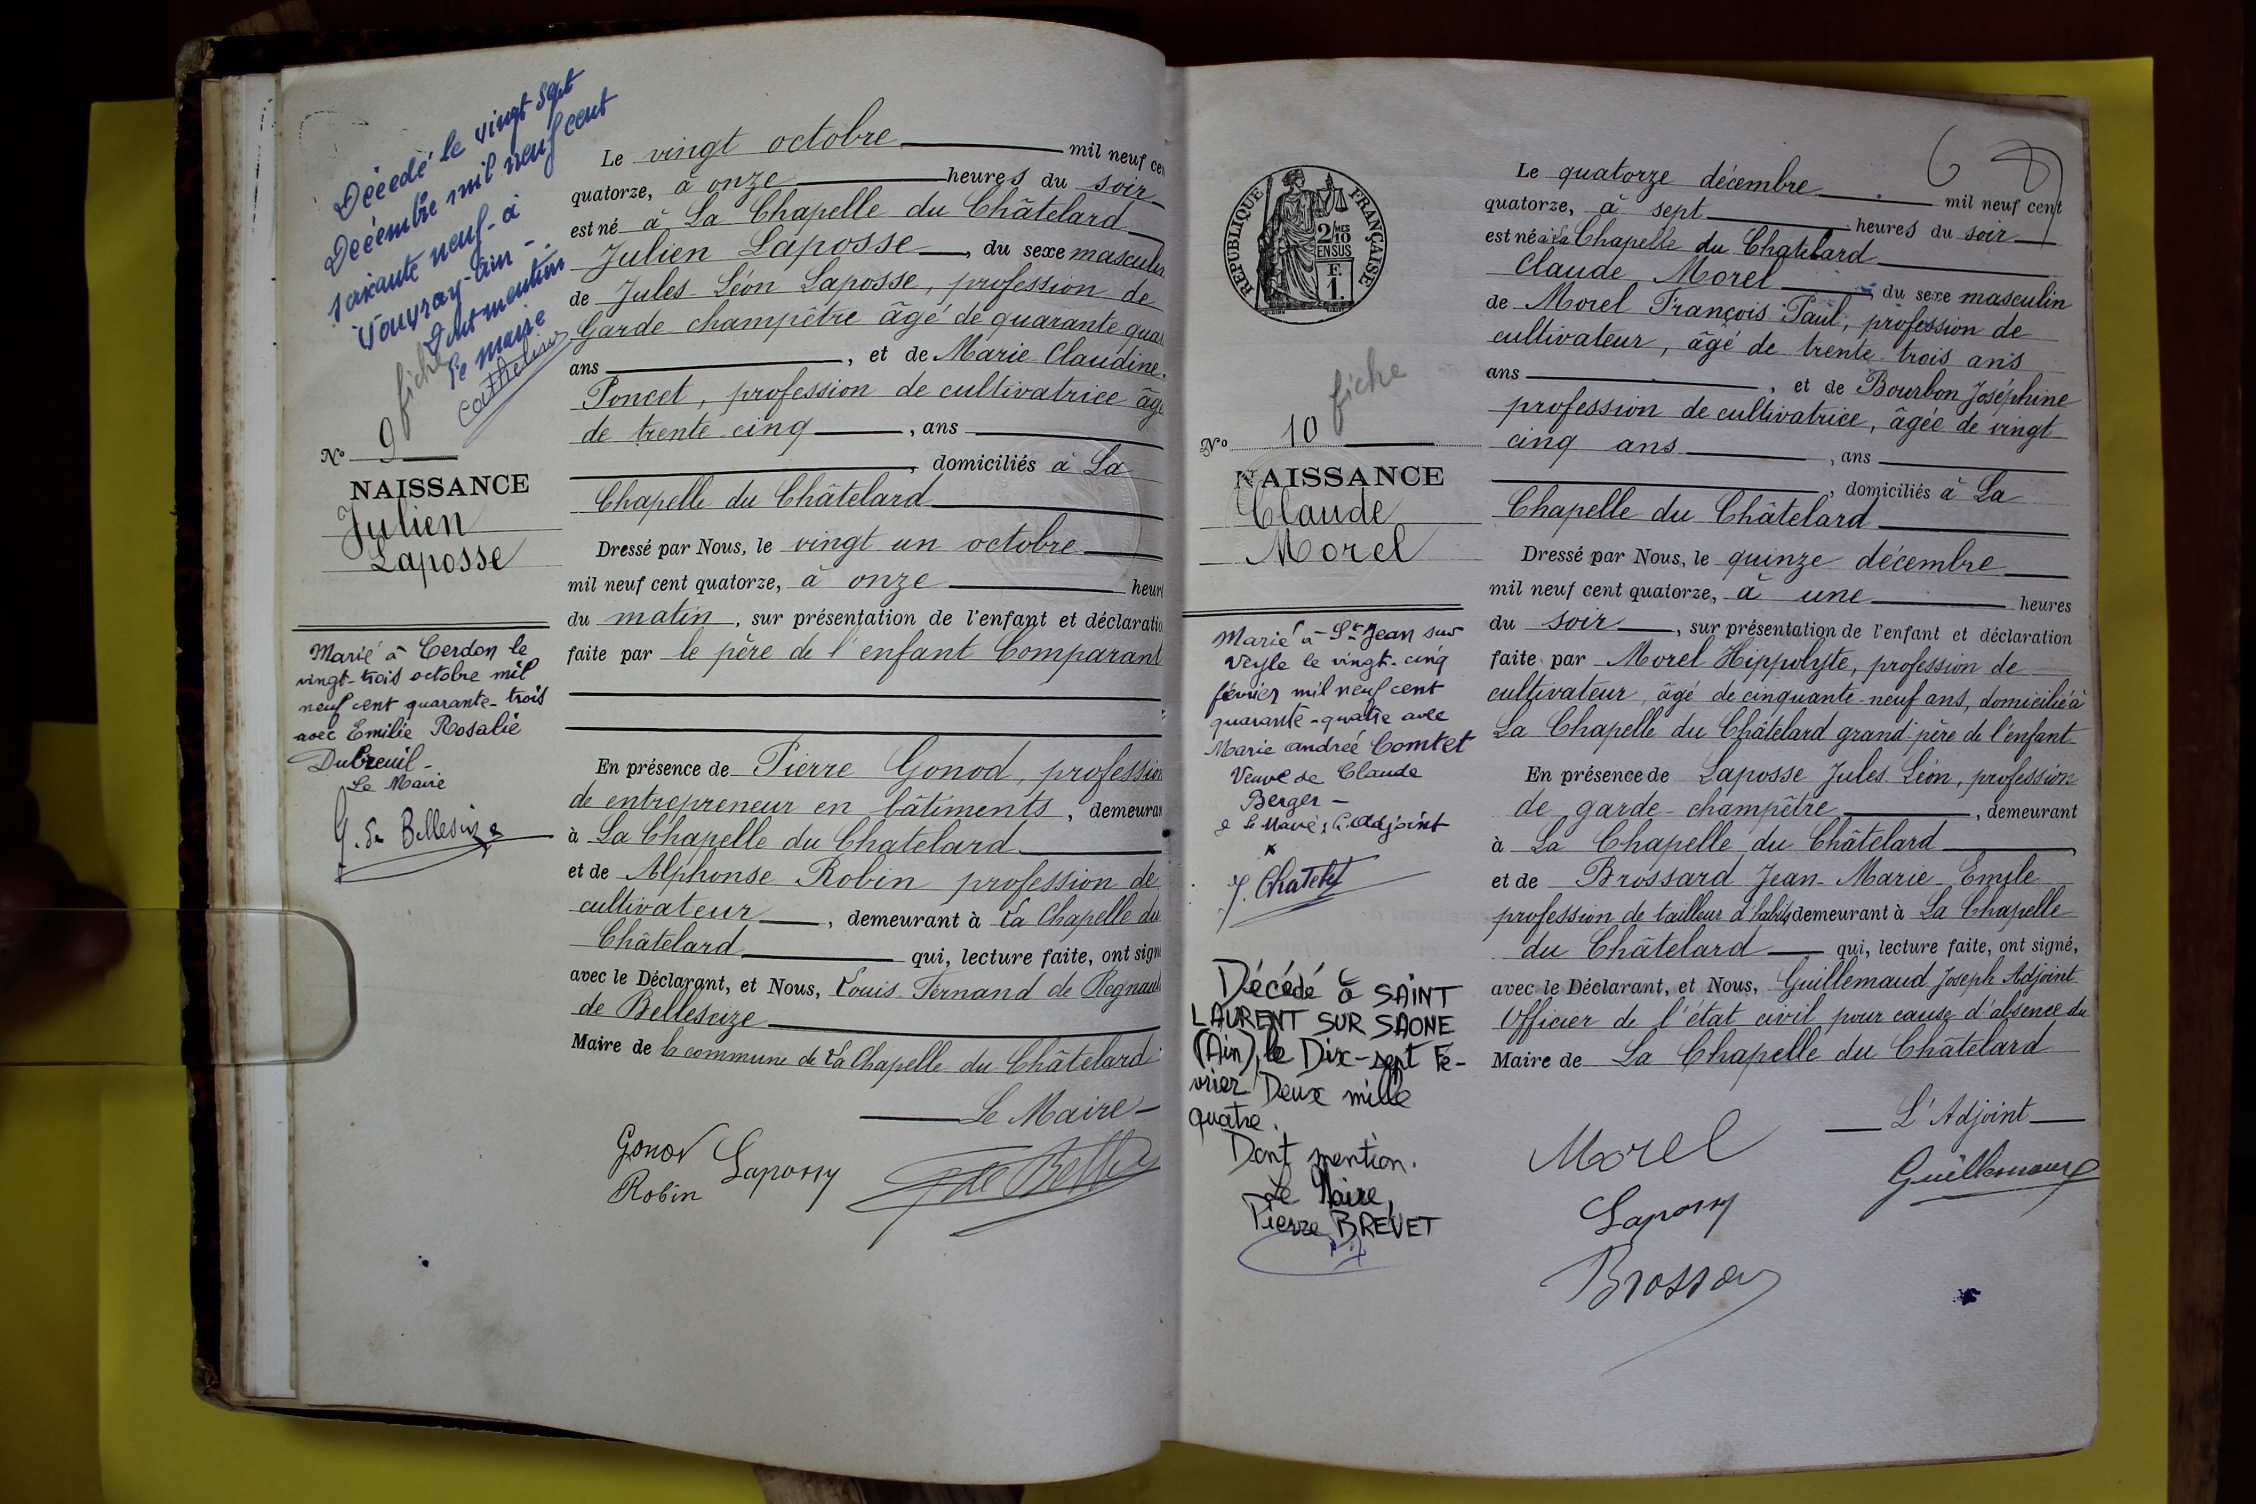 Décédé le vingt sept
Décémbre mil neuf cent
soixante neuf - à
Vouvray - Ain -
Dont mention
le maire
fiche
N° 9
NAISSANCE
Julien
Laposse
Marié à Cerdon le
vingt-trois octobre mil
neuf cent quarante-trois
avec Emilie Rosalie
Dubreuil -
Le Maire
Le vingt octobre mil neuf cen
quatorze, à onze heures du soir
est né à La Chapelle du Châtelard
Julien Laposse, du sexe masculin
de Jules Léon Laposse, profession de
Garde champêtre âgé de quarante quat
ans, et de Marie Claudine
Poncet, profession de cultivatrice âgé
de trente cinq, ans
, domiciliés à La
Chapelle du Châtelard
Dressé par Nous, le vingt un octobre
mil neuf cent quatorze, à onze heure
du matin, sur présentation de l'enfant et déclaratio
faite par le père de l'enfant Comparant
En présence de Pierre Gonod, profession
de entrepreneur en bâtiments, demeuran
à La Chapelle du Chatelard
et de Alphonse Robin profession de
cultivateur, demeurant à La Chapelle du
Châtelard qui, lecture faite, ont signé
avec le Déclarant, et Nous, Louis Fernand de Regnauld
de Bellescize
Maire de la commune de La Chapelle du Châtelard
Le Maire
Gonod Laposse
Robin
RÉPUBLIQUE FRANÇAISE
2/10
EN SUS
F.
1.
fiche
N° 10
NAISSANCE
Claude
Morel
Marié à St Jean sur
Veyle le vingt-cinq
février mil neuf cent
quarante-quatre avec
Marie andrée Comtet
Veuve de Claude
Berger -
Le Maire, l'Adjoint
J. Chatelet
Décédé à SAINT
LAURENT SUR SAONE
(Ain), le Dix-sept Fé-
vrier Deux mille
quatre.
Dont mention.
Le Maire,
Pierre BREVET
Le quatorze décembre mil neuf cent
quatorze, à sept heures du soir
est né à La Chapelle du Chatelard
Claude Morel, du sexe masculin
de Morel François Paul, profession de
cultivateur, âgé de trente trois ans
ans, et de Bourbon Joséphine
profession de cultivatrice, âgée de vingt
cinq ans, ans
, domiciliés à La
Chapelle du Châtelard
Dressé par Nous, le quinze décembre
mil neuf cent quatorze, à une heures
du soir, sur présentation de l'enfant et déclaration
faite par Morel Hippolyte, profession de
cultivateur, âgé de cinquante-neuf ans, domicilié à
La Chapelle du Châtelard grand père de l'enfant
En présence de Laposse Jules Léon, profession
de garde-champêtre, demeurant
à La Chapelle du Châtelard
et de Brossard Jean-Marie Emile
profession de tailleur d'habits demeurant à La Chapelle
du Châtelard qui, lecture faite, ont signé,
avec le Déclarant, et Nous, Guillemaud Joseph Adjoint
Officier de l'état civil pour cause d'absence du
Maire de La Chapelle du Châtelard
L'Adjoint
Morel
Guillemaud
Laposse
Brossard